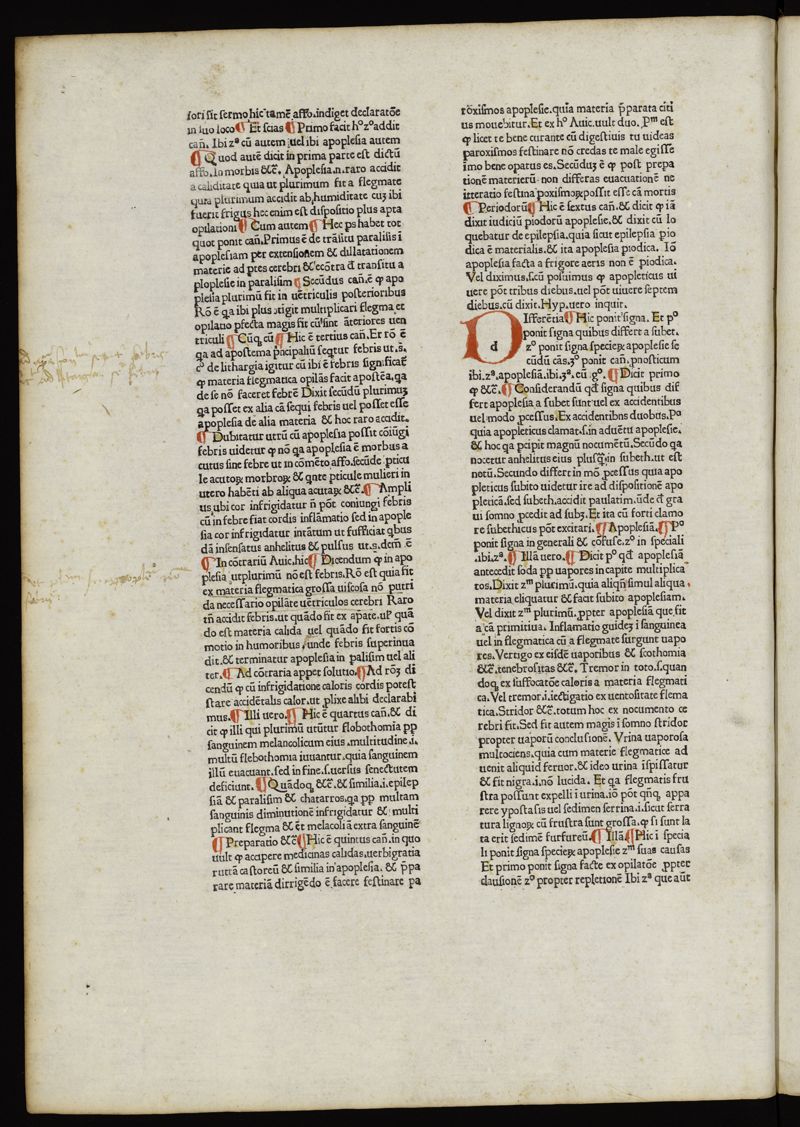 lori sit sermo hic tamē affo. indiget declaratōe
in suo loco ¶ Et scias ¶ Primo facit h° z° addit
cañ. Ibi zª cū autem uel ibi apoplesia autem
¶ Quod autē dicit in prima parte est dictū
affo. In morbis &č. Apoplesia .n. raro accidit
a caliditate quia ut plurimum fit a flegmate
quia plurimum accidit ab humiditate cuȝ ibi
fuerit frigus hec enim est dispositio plus apta
opilationi ¶ Cum autem ¶ Hec ps habet tot
quot ponit cañ. Primus ē de trāsitu paralisis ī
apoplesiam per extensionem & dillatationem
materie ad ptes cerebri & ecōtra đ transitu a
ploplesie in paralisim ¶ Secūdus cañ. ē ꝙ apo
plesia plurimū fit in uētriculis posterioribus
Rō ē qa ibi plus ɔtigit multiplicari flegma et
opilatio pfecta magis fit cū sint āteriores uen
triculi ¶ Cūq, cū ¶ Hic ē tertius cañ. Et rō ē
qa ad apostema pncipahū seqtur febris ut .s.
c° de lithargia igitur cū ibi ē febris significat
ꝙ materia flegmatica opilās facit apostēa, qa
de se nō faceret febrē Dixit secūdū plurimuȝ
qa posset ex alia cā sequi febris uel posset esse
apoplesia de alia materia & hoc raro accidit.
¶ Dubitatur utrū cū apoplesia possit cōiūgi
febris uidetur ꝙ nō qa apoplesia ē morbus a
cutus sine febre ut in cōmēto affo. secūde pticu
le acutoꝝ morboꝝ & qnte pticule mulieri in
utero habēti ab aliqua acutaꝝ &č. ¶ Ampli
us ubi cor infrigidatur ñ pōt coniungi febris
cū in febre fiat cordis inflāmatio sed in apople
sia cor infrigidatur intātum ut sufficiat qbus
dā insensatus anhelitus & pulsus ut .s. dcm̄ ē
¶ In cōtrariū Auic. hic ¶ Dicendum ꝙ in apo
plesia ut plurimū nō est febris. Rō est quia fit
ex materia flegmatica grossa uiscosa nō putri
da necessario opilāte uētriculos cerebri Raro
tñ accidit febris. ut quādo fit ex apate. ul' quā
do est materia calida uel quādo fit fortis cō
motio in humoribus, unde febris superinua
dit. & terminatur apoplesia in palisim uel ali
ter. ¶ Ad cōtraria appet solutio. ¶ Ad roȝ di
cendū ꝙ cū infrigidatione caloris cordis potest
stare accidētalis calor. ut plixe alibi declarabi
mus. ¶ Illi uero. ¶ Hic ē quartus cañ. & di
cit ꝙ illi qui plurimū utūtur flobothomia pp
sanguinem melancolicum eius, multitudine .i.
multū flebothomia iuuantur. quia sanguinem
illū euacuant. sed in fine .s. uersus senectutem
deficiunt. ¶ Quādoq, &č. & similia .i. epilep
siā & paralisim & chatarros. qa pp multam
sanguinis diminutionē infrigidatur & multi
plicant flegma & ēt melacoliā extra sanguinē
¶ Preparatio &č ¶ Hic ē quintus cañ. in quo
uult ꝙ accipere medicinas calidas, uerbigratia
ruttā castoreū & similia in apoplesia. & ppa
rare materiā dirrigēdo ē facere festinare pa
roxismos apoplesie. quia materia pparata citi
us mouebitur. Et ex h° Auic. uult duo. Pm̄ est
ꝙ licet te bene curante cū digestiuis tu uideas
paroxismos festinare nō credas te male egisse
imo bene opatus es. Secūduȝ ē ꝙ post prepa
tionē materierū non differas euacuationē ne
itteratio festina poxismoꝝ possit esse cā mortis
¶ Periodorū ¶ Hic ē sextus cañ. & dicit ꝙ iā
dixit iudiciū piodorū apoplesie. & dixit cū lo
quebatur de epilepsia. quia sicut epilepsia pio
dica ē materialis. & ita apoplesia piodica. Iō
apoplesia facta a frigore aeris non ē piodica.
Vel diximus. s. cū posuimus ꝙ apopleticus ui
uere pōt tribus diebus. uel pōt uiuere septem
diebus. cū dixit. Hyp. uero inquit.
Differētia ¶ Hic ponit signa. Et p°
ponit signa quibus differt a subet.
z° ponit signa specieꝝ apoplesie se
cūdū cās. ȝ° ponit cañ. pnosticum
ibi. zª. apoplesiā. ibi. ȝª. cū g°. ¶ Dicit primo
ꝙ &č. ¶ Considerandū qđ signa quibus dif
fert apoplesia a subet sunt uel ex accidentibus
uel modo pcessus. Ex accidentibus duobus. Pª
quia apopleticus clamat .s. in aduētu apoplesie.
& hoc qa pcipit magnū nocumētū. Secūdo qa
nocetur anhelitus eius plusq̄ in subeth. ut est
notū. Secundo differt in mō pcessus quia apo
pleticus subito uidetur ire ad dispositionē apo
pleticā. sed subeth. accidit paulatim. ūde đ gra
ui somno pcedit ad subȝ. Et ita cū forti clamo
re subethicus pōt excitari. ¶ Apoplesia. ¶ P°
ponit signa in generali & cōfuse. z° in speciali
.ibi. zª. ¶ Illā uero. ¶ Dicit p° qđ apoplesiā
antecedit soda pp uapores in capite multiplica
tos. Dixit zm̄ plurimū. quia aliqñ simul aliqua.
materia eliquatur & facit subito apoplesiam.
Vel dixit zm̄ plurimū. ppter apoplesiā que fit
a cā primitiua. Inflamatio guidez i sanguinea
uel in flegmatica cū a flegmate surgunt uapo
res. Vertigo ex eisdē uaporibus & scothomia
&č. tenebrositas &č. Tremor in toto. s. quan
doq, ex suffocatōe caloris a materia flegmati
ca. Vel tremor .i. iectigatio ex uentositate flema
tica. Stridor &č. totum hoc ex nocumento ce
rebri fit. Sed fit autem magis ī somno stridor
propter uaporū conclusionē. Vrina uaporosa
multociens. quia cum materie flegmatice ad
uenit aliquid feruor. & ideo urina īspissatur
& fit nigra .i. nō lucida. Et qa flegmatis fru
stra possunt expelli ī urina. iō pōt qñq, appa
rere ypostasis uel sedimen serrina .i. sicut serra
tura lignoꝝ cū frustra sunt grossa. ꝙ si sunt la
ta erit sedimē furfureū. ¶ Illā ¶ Hic ī specia
li ponit signa specieꝝ apoplesie zm̄ suas causas
Et primo ponit signa facte ex opilatōe ppter
clausionē z° propter repletionē Ibi zª que aūt